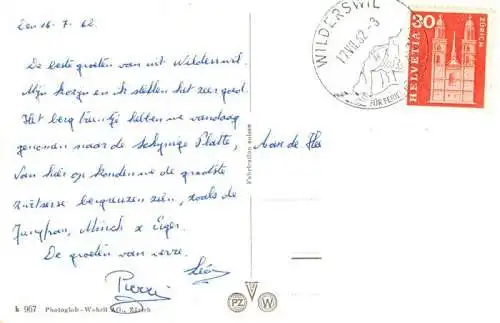 Den 16.7.62
De beste groeten van uit Wilderswil.
Mijn en ik stellen het zeer goed.
Het berg treintje hebben we vandaag
genomen naar de Schynige Platte,
Van hier op konden we de grootste
Zwitserse bergreuzen zien, zoals de
Jungfrau, Münch x Eiger.
De groeten van verre.
Pierre
Léon
Aan de
WILDERSWIL
17.VII.62-3
FÜR FERI
HELVETIA
30
ZÜRICH
Fabrication suisse
k 967 Photoglob-Wehrli AG., Zürich
PZ W